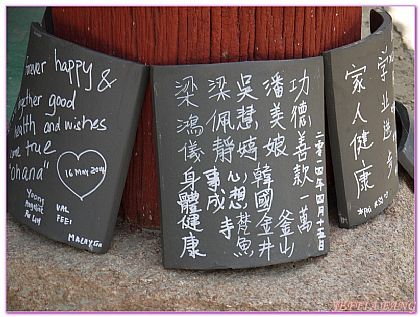 forever happy &
together good
health and wishes
come true
"ohana"
16 MAY 2014
VAL
FEEI
MALAYSIA
二零一四年四月十五日
功德善款一萬
潘美娘 韓國釜山
吳慧嬪 金井
梁佩靜 心想事成 梵魚寺
梁鴻儀 身體健康
學業進步
家人健康